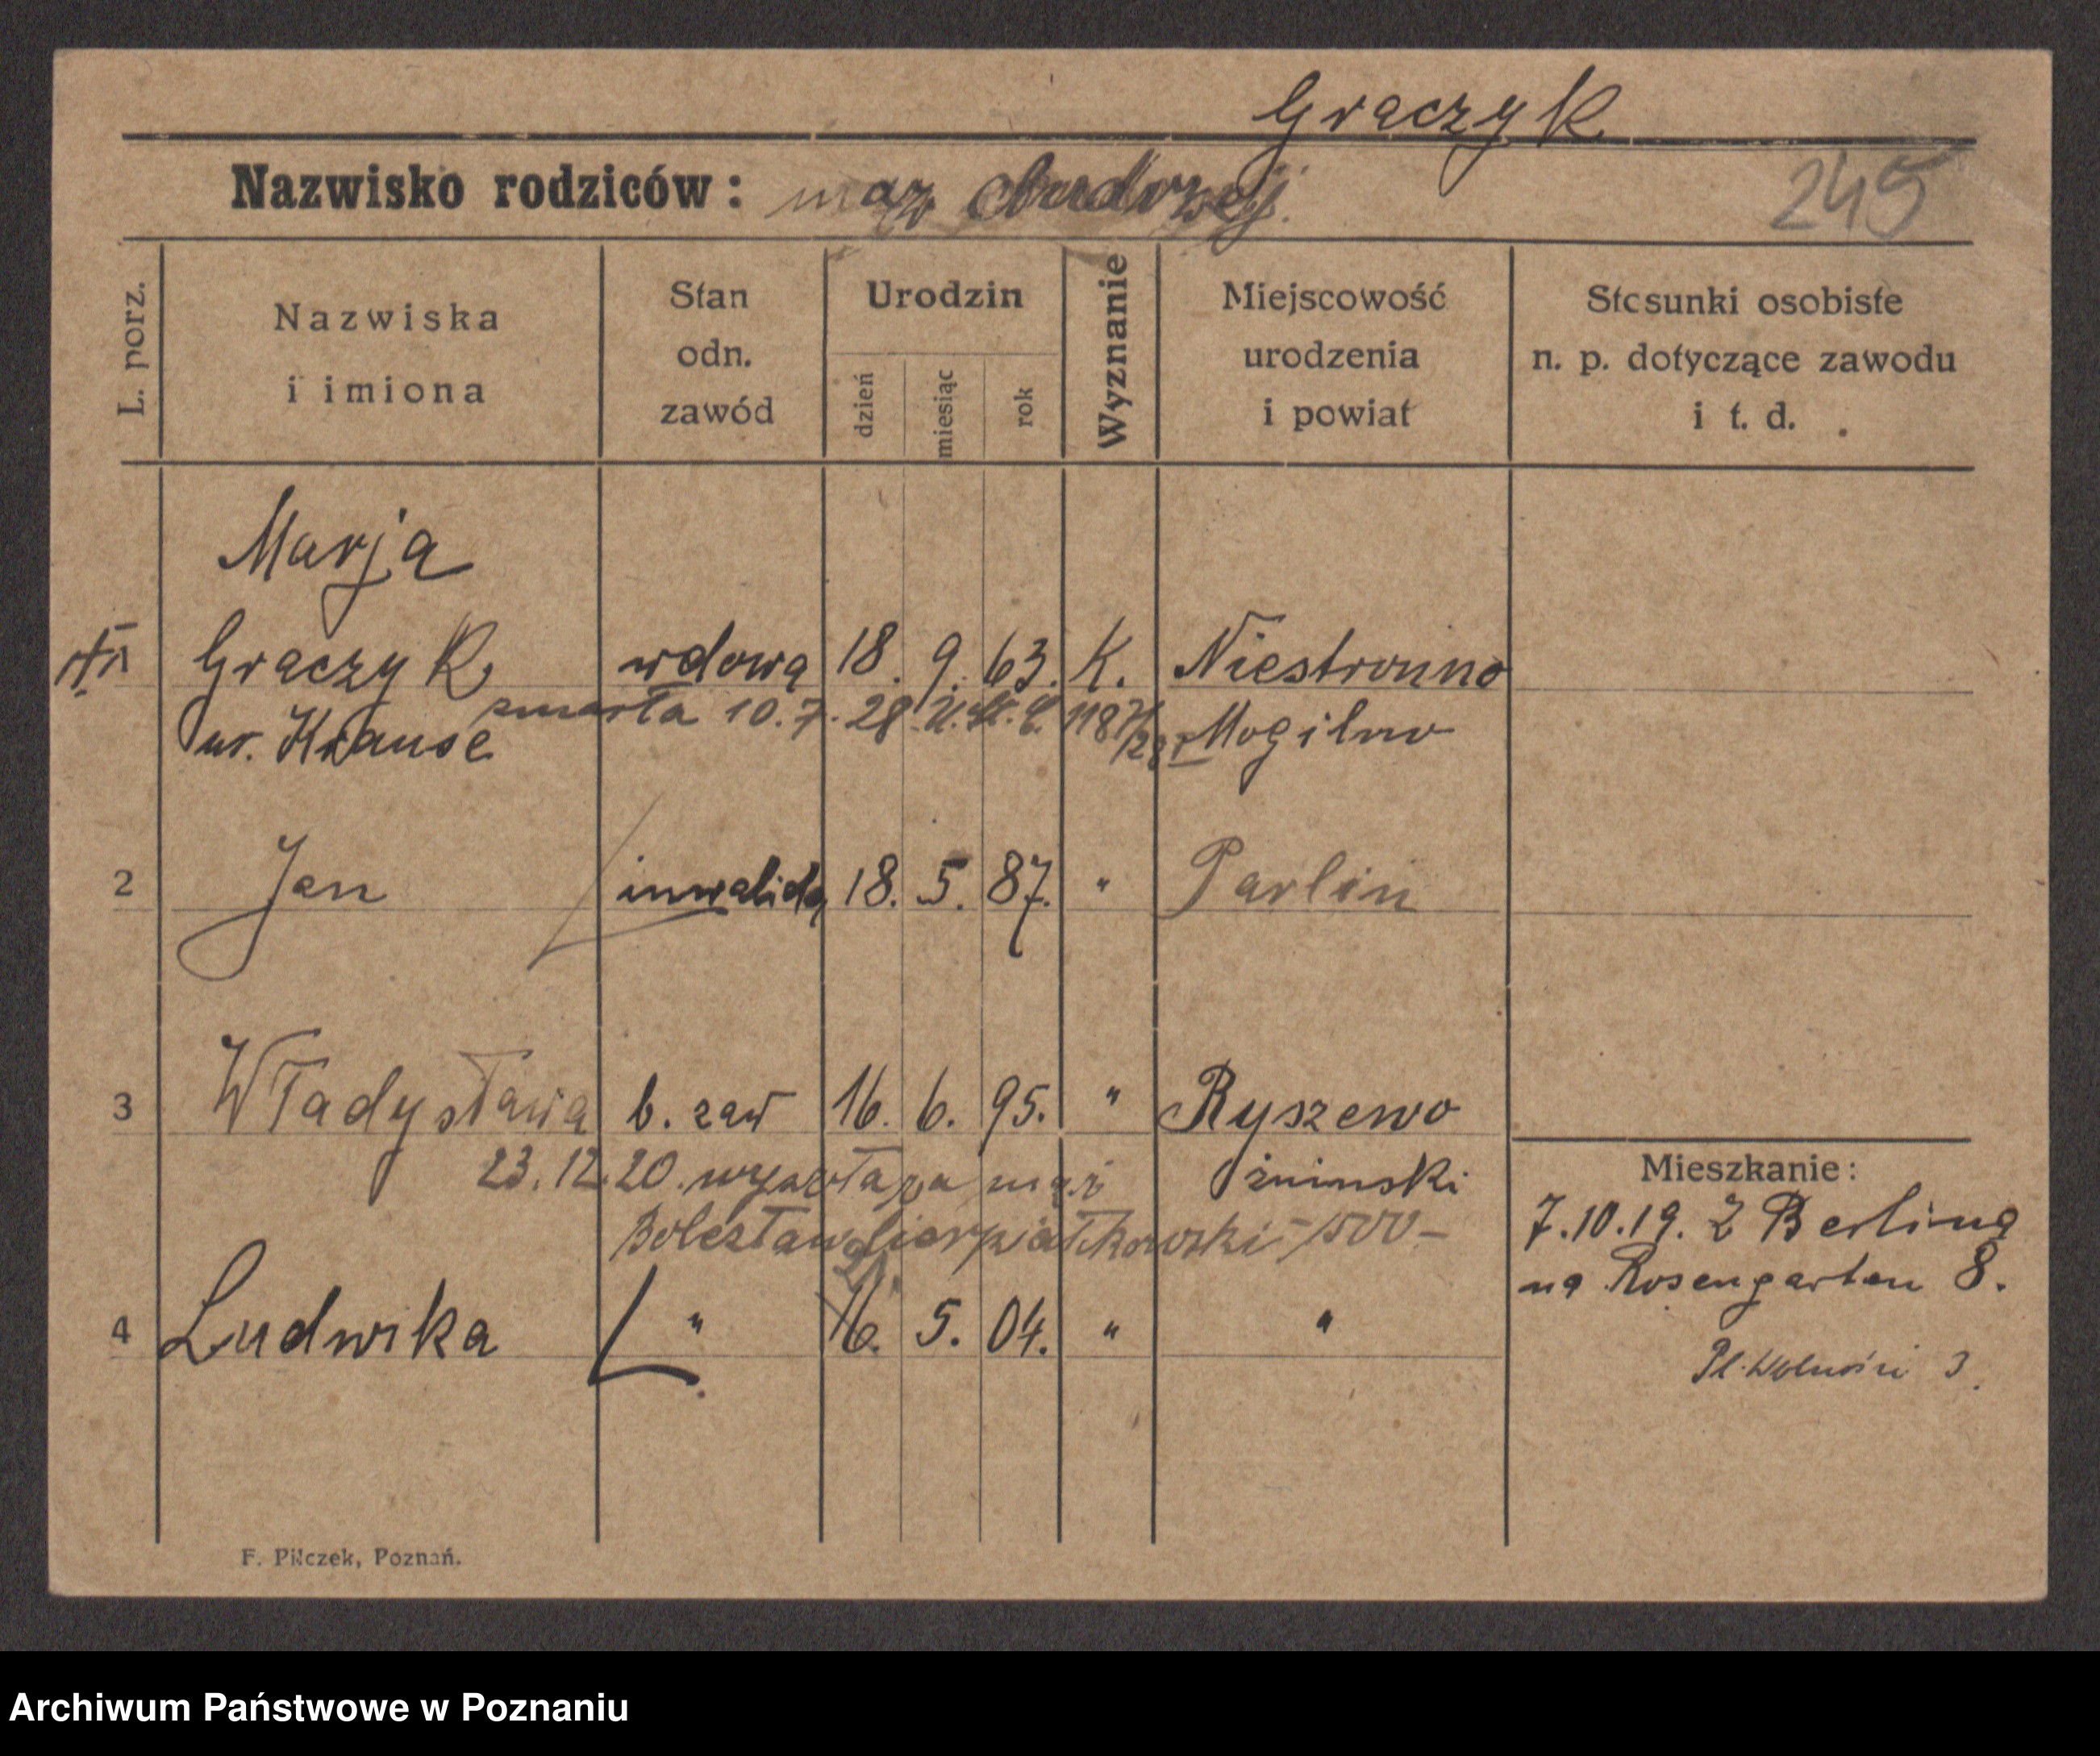 Graczyk
Nazwisko rodziców: mąż Andrzej.
245
L. porz.
Nazwiska
i imiona
Stan
odn.
zawód
Urodzin
dzień
miesiąc
rok
Wyznanie
Miejscowość
urodzenia
i powiat
Stosunki osobiste
n. p. dotyczące zawodu
i t. d.
Marja
1 Graczyk wdowa 18. 9. 63. K. Niestronno
zmarła 10.7.28
ur. Krause Mogilno
2 Jan inwalida 18. 5. 87. " Parlin
3 Władysława b. zaw 16. 6. 95. " Ryszewo
23.12.20. wyszła za mąż żninski
Bolesław
4 Ludwika " 16. 5. 04. " "
21.
Mieszkanie:
7.10.19. Z Berlina
na Rosengarten 8.
Pl. Wolności 3.
F. Pilczek, Poznań.
Archiwum Państwowe w Poznaniu